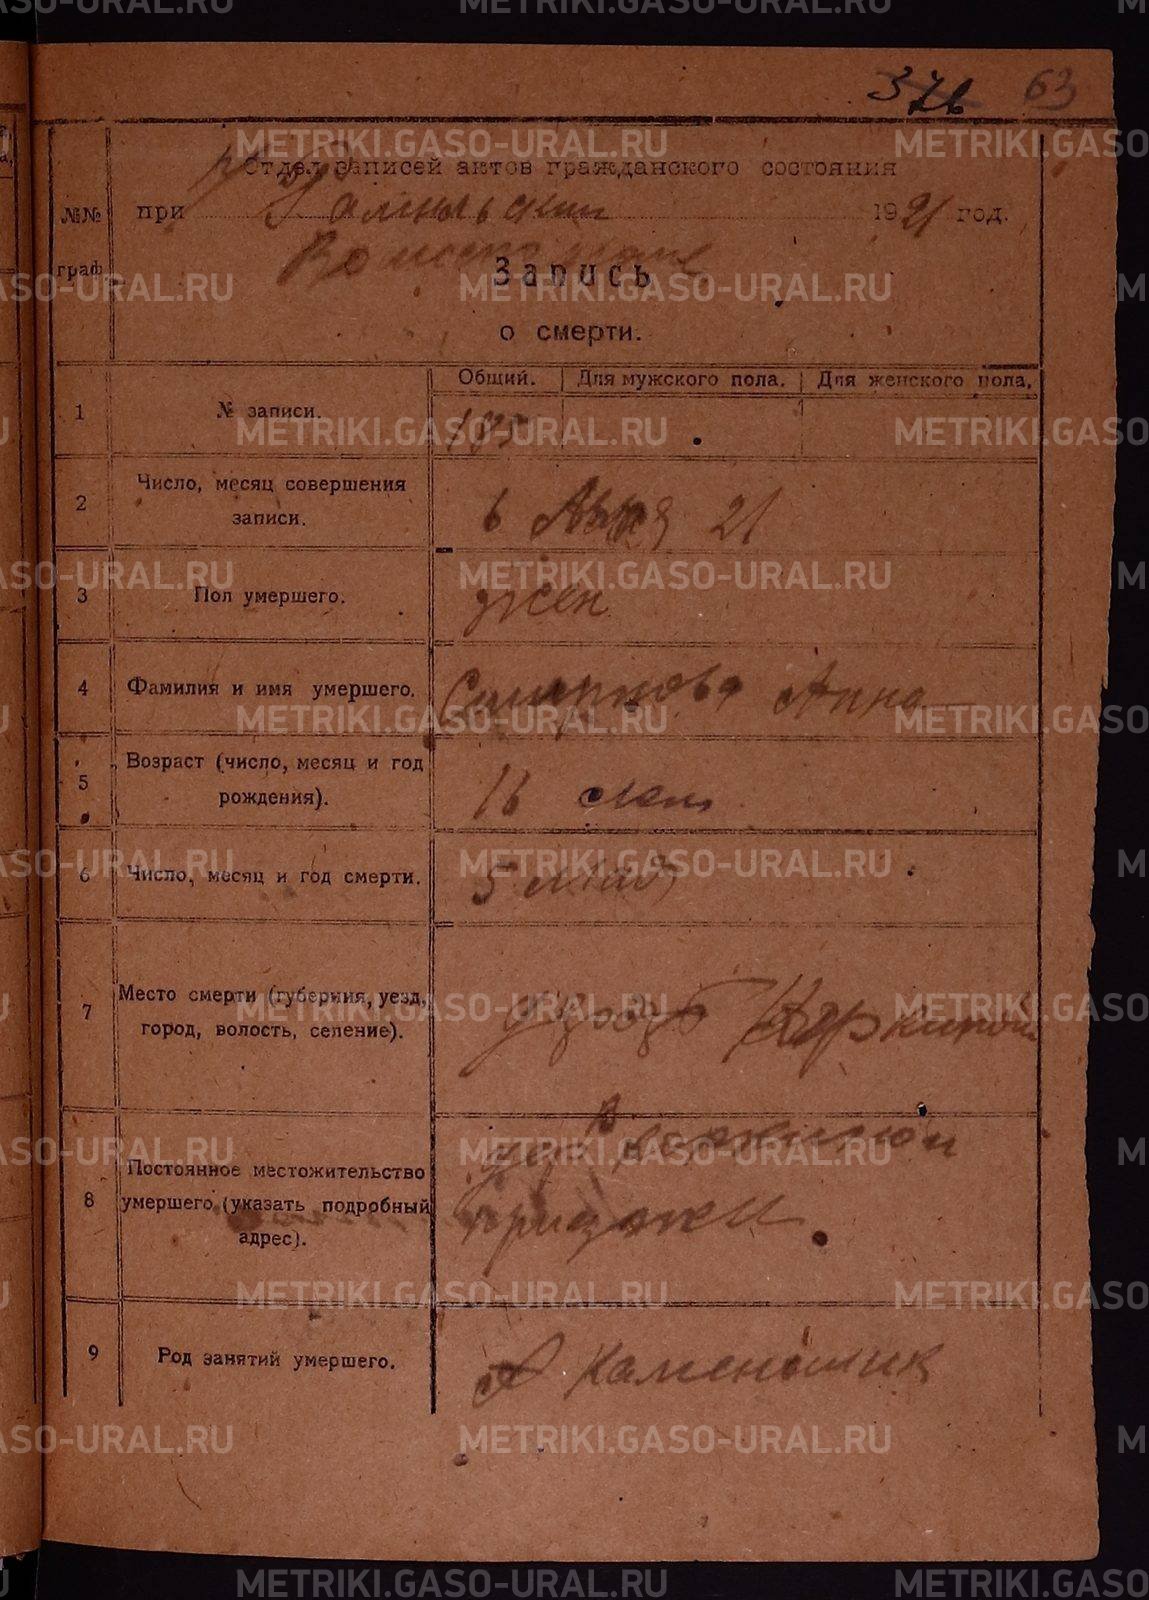 376 63
Отдел записей актов гражданского состояния
№№ при 1921 год.
граф Запись
о смерти.
Общий. Для мужского пола. Для женского пола.
1 № записи. 195
2 Число, месяц совершения записи. 6 21
3 Пол умершего. жен
4 Фамилия и имя умершего. Смирнова Анна
5 Возраст (число, месяц и год рождения). 16 лет
6 Число, месяц и год смерти. 5 мая
7 Место смерти (губерния, уезд, город, волость, селение).
8 Постоянное местожительство умершего (указать подробный адрес).
9 Род занятий умершего. Каменьшик
METRIKI.GASO-URAL.RU